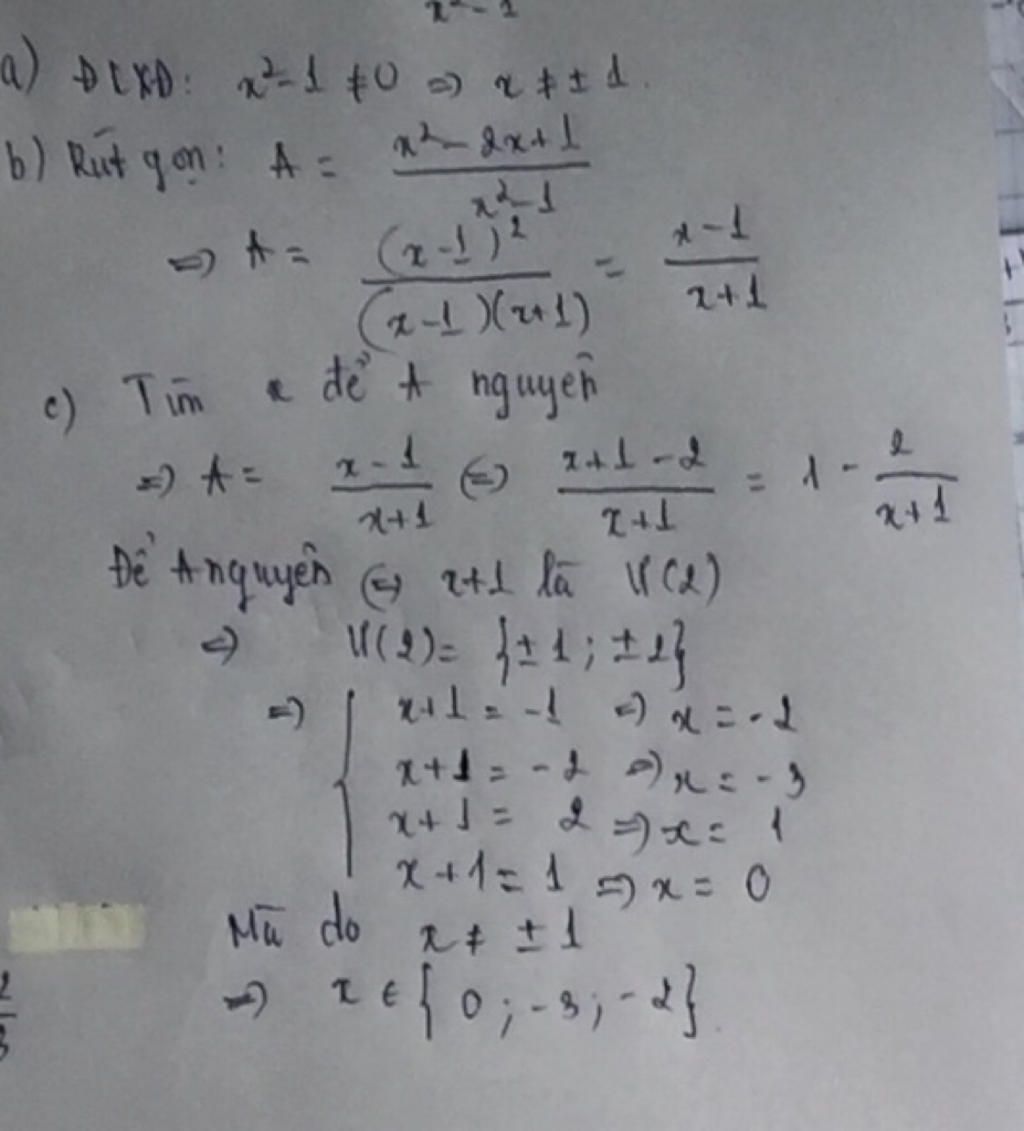 x²-1
a) ĐCXĐ: x²-1 ≠ 0 => x ≠ ± 1.
b) Rút gọn: A = (x²- 2x+1)/(x²-1)
=> A = (x-1)²/((x-1)(x+1)) = (x-1)/(x+1)
c) Tìm x để A nguyên
=> A = (x-1)/(x+1) <=> (x+1-2)/(x+1) = 1 - 2/(x+1)
Để A nguyên <=> x+1 là Ư(2)
=> Ư(2)= {±1; ±2}
=> { x+1 = -1 => x = -2
x+1 = -2 => x = -3
x+1 = 2 => x = 1
x+1 = 1 => x = 0
Mà do x ≠ ± 1
=> x ∈ { 0 ; -3 ; -2}.